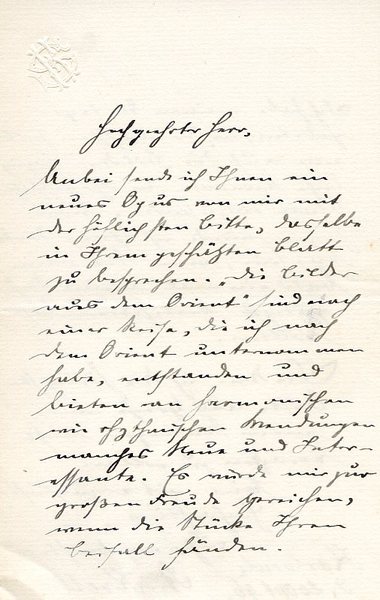 Hochgeehrter Herr,
Anbei sende ich Ihnen ein
neues Opus von mir mit
der höflichsten Bitte, dasselbe
in Ihrem geschätzten Blatt
zu besprechen. „Die Bilder
aus dem Orient“ sind nach
einer Reise, die ich nach
dem Orient unternommen
habe, entstanden und
bieten an harmonischen
wie rhythmischen Wendungen
manches Neue und Inter-
essante. Es würde mir zur
großen Freude gereichen,
wenn die Stücke Ihren
Beifall fänden.